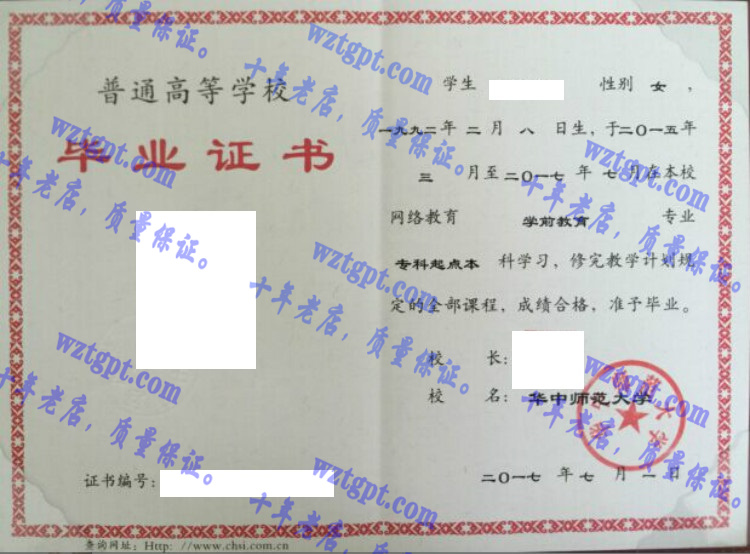 普通高等学校
毕业证书
证书编号:
查询网址: Http: //www.chsi.com.cn
学生 性别 女,
一九九二年 二 月 八 日生, 于二〇一五年
三 月至 二〇一七 年 七 月在本校
网络教育 学前教育 专业
专科起点本 科学习, 修完教学计划规
定的全部课程, 成绩合格, 准予毕业。
校 长:
校 名: 华中师范大学
二〇一七 年 七 月 一 日
wztgpt.com
十年老店,质量保证。
wztgpt.com
十年老店,质量保证。
wztgpt.com
十年老店,质量保证。
wztgpt.com
十年老店,质量保证。
wztgpt.com
十年老店,质量保证。
wztgpt.com
十年老店,质量保证。
wztgpt.com
十年老店,质量保证。